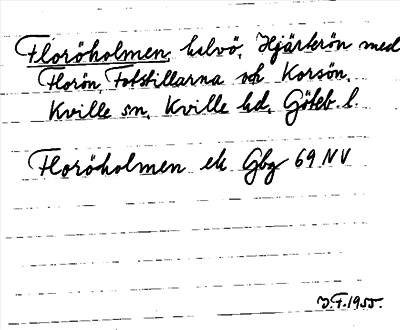 Floröholmen, halvö, Hjärterön med
Florön, Fotskillarna och Korsön,
Kville sn, Kville hd, Göteb. l.
Floröholmen ek Gbg 69 NV
J.F. 1955.